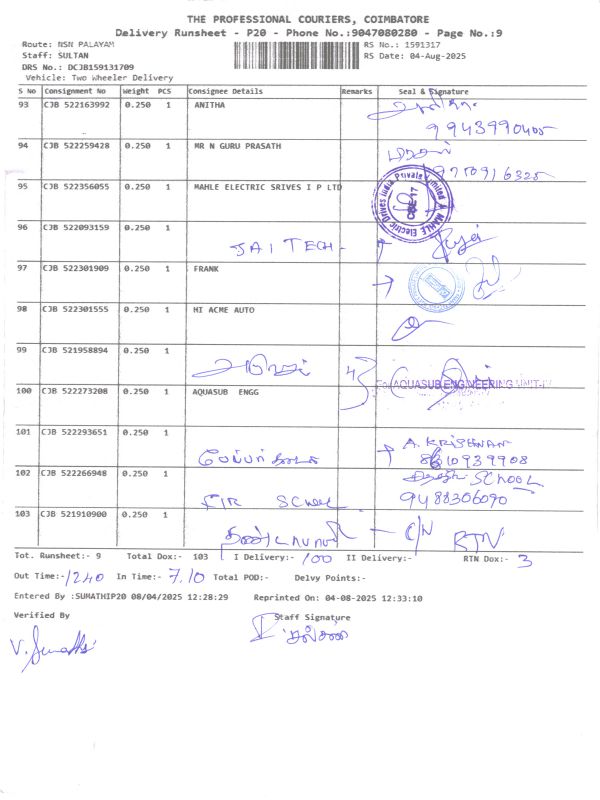 THE PROFESSIONAL COURIERS, COIMBATORE
Delivery Runsheet - P20 - Phone No.:9047080280 - Page No.:9
Route: NSN PALAYAM
RS No.: 1591317
Staff: SULTAN
RS Date: 04-Aug-2025
DRS No.: DCJB159131709
Vehicle: Two Wheeler Delivery
S No Consignment No Weight PCS Consignee Details Remarks Seal & Signature
93 CJB 522163992 0.250 1 ANITHA
94 CJB 522259428 0.250 1 MR N GURU PRASATH
95 CJB 522356055 0.250 1 MAHLE ELECTRIC SRIVES I P LTD
MAHLE Electric Drives India Private Limited
CBE-17
96 CJB 522093159 0.250 1
JAI TECH -
97 CJB 522301909 0.250 1 FRANK
98 CJB 522301555 0.250 1 HI ACME AUTO
99 CJB 521958894 0.250 1
100 CJB 522273208 0.250 1 AQUASUB ENGG
For AQUASUB ENGINEERING UNIT-IV
101 CJB 522293651 0.250 1
A. KRISHNAN
8610939908
102 CJB 522266948 0.250 1
SCHOOL
9488306090
103 CJB 521910900 0.250 1
C/N RTN
Tot. Runsheet:- 9 Total Dox:- 103 I Delivery:- 100 II Delivery:- RTN Dox:- 3
Out Time:- 1240 In Time:- 7.10 Total POD:- Delvy Points:-
Entered By :SUMATHIP20 08/04/2025 12:28:29 Reprinted On: 04-08-2025 12:33:10
Verified By Staff Signature
V. Sumathi